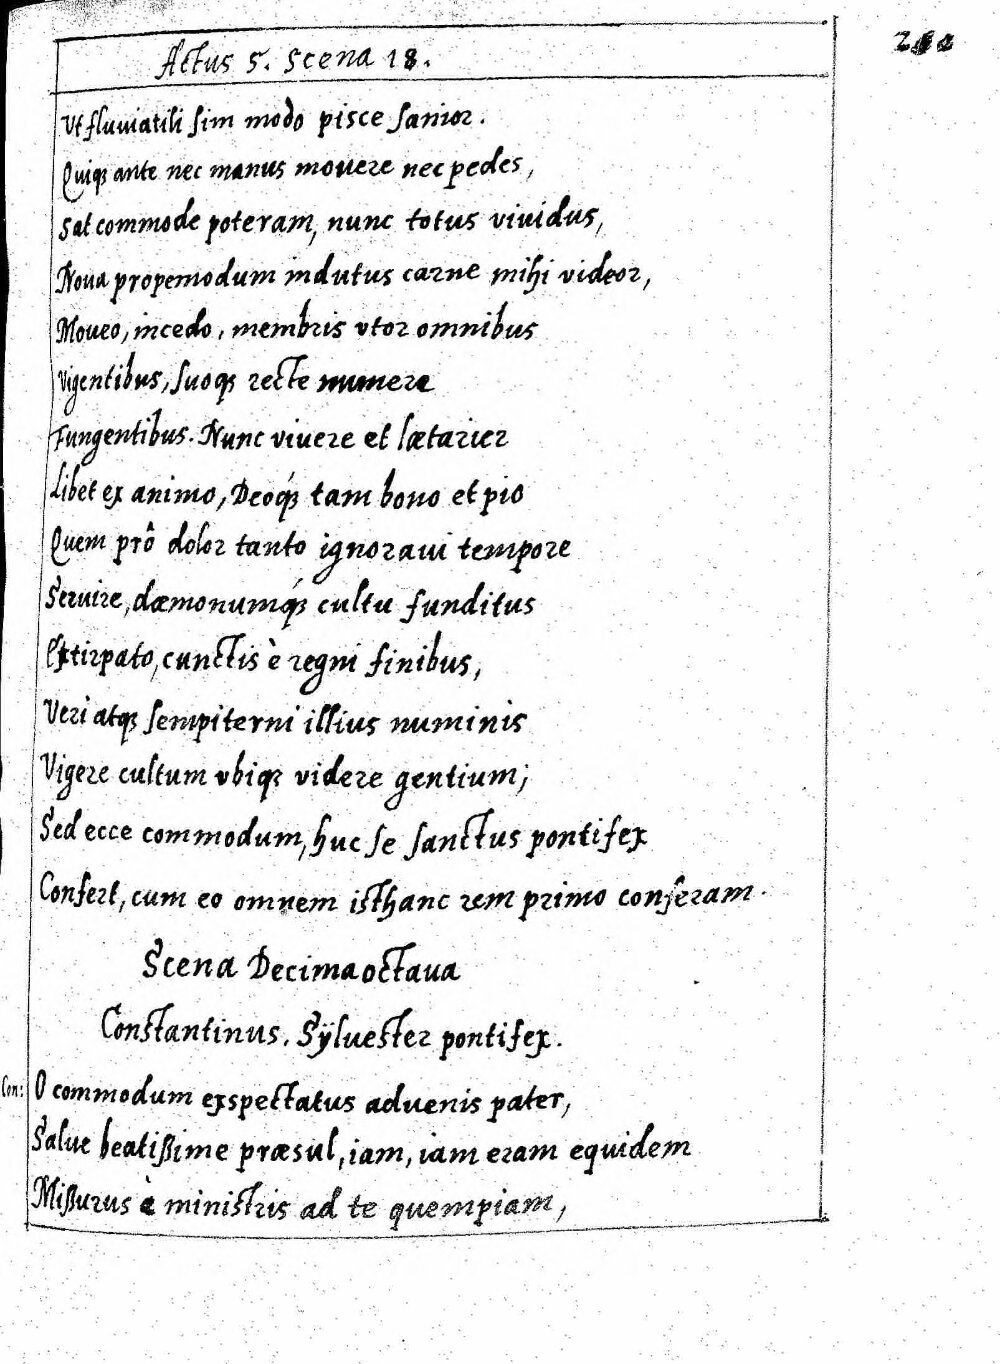 Actus 5. Scena 18.
Ut fluuiatili sim modo pisce sanior.
Quiqꝫ ante nec manus mouere nec pedes,
Sat commode poteram, nunc totus viuidus,
Noua propemodum indutus carne mihi videor,
Moueo, incedo, membris vtor omnibus
Vigentibus, suoqꝫ recte munere
Fungentibus. Nunc viuere et lætarier
Libet ex animo, Deoqꝫ́ tam bono et pio
Quem prô dolor tanto ignoraui tempore
Seruire, dæmonumqꝫ́ cultu funditus
Extirpato, cunctis è regni finibus,
Veri atqꝫ sempiterni illius numinis
Vigere cultum vbiqꝫ videre gentium;
Sed ecce commodum, huc se sanctus pontifex
Confert, cum eo omnem isthanc rem primo conferam.
Scena Decimaoctaua
Constantinus. Sÿluester pontifex.
Con: O commodum exspectatus aduenis pater,
Salue beatißime præsul, iam, iam eram equidem
Mißurus è ministris ad te quempiam,